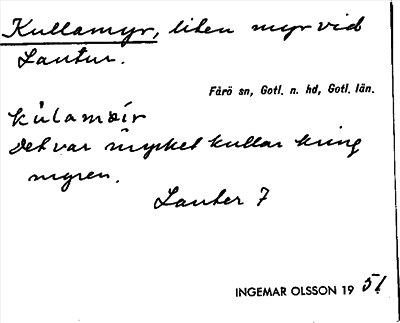 Kullamyr, liten myr vid
Lautur.
Fårö sn, Gotl. n. hd, Gotl. län.
kulamäir
Det var mycket kullar kring
myren.
Lauter 7
INGEMAR OLSSON 19 51